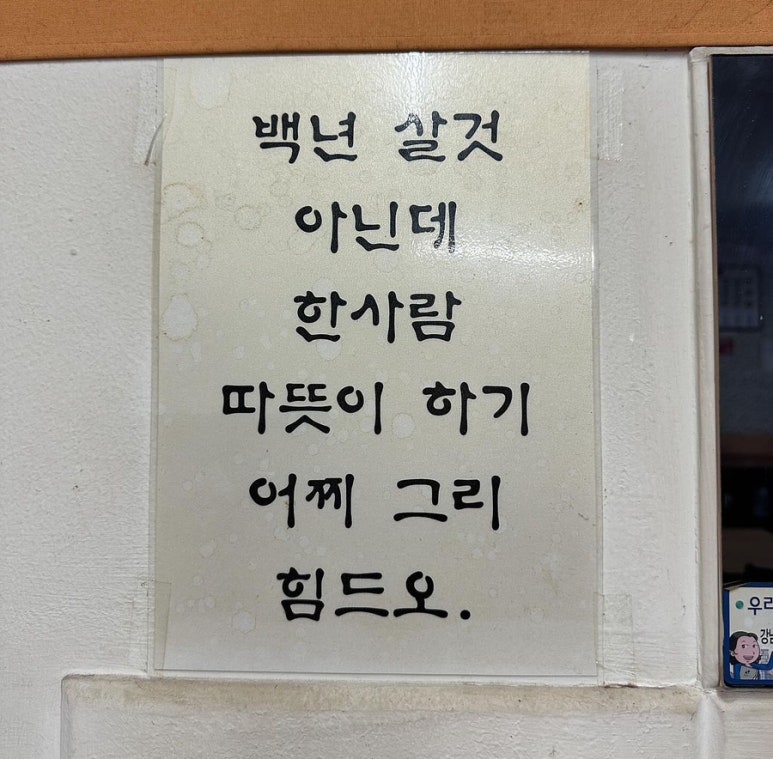 백년 살것
아닌데
한사람
따뜻이 하기
어찌 그리
힘드오.
우리
강남